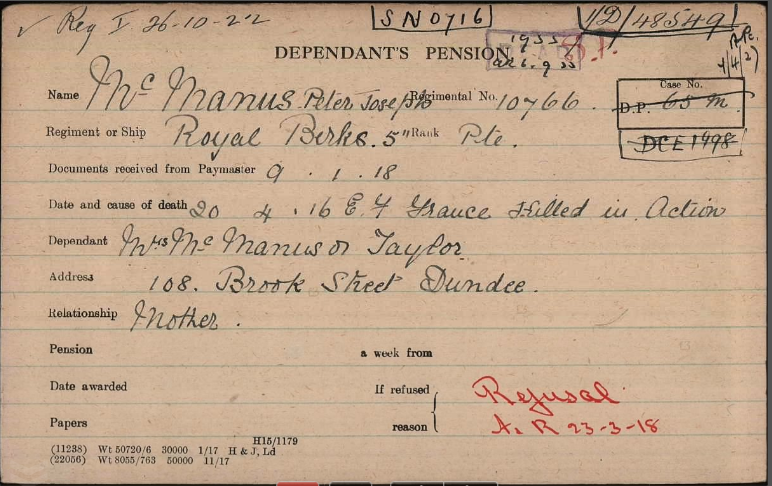 ✓ Reg I 26-10-22 SN0716 1/D/48549
DEPENDANT'S PENSION
Name McManus Peter Joseph Regimental No. 10766. Case No.
D.P. 65 M
Regiment or Ship Royal Berks. 5" Rank Pte. DCE1998
Documents received from Paymaster 9 . 1 . 18
Date and cause of death 20 4 . 16 E.F France Killed in Action
Dependant Mrs McManus or Taylor
Address 108. Brook Street Dundee.
Relationship Mother.
Pension a week from
Date awarded If refused Refusal
Papers reason A. R 23-3-18
H15/1179
(11238) Wt 50720/6 30000 1/17 H & J, Ld
(22056) Wt 8055/763 50000 11/17